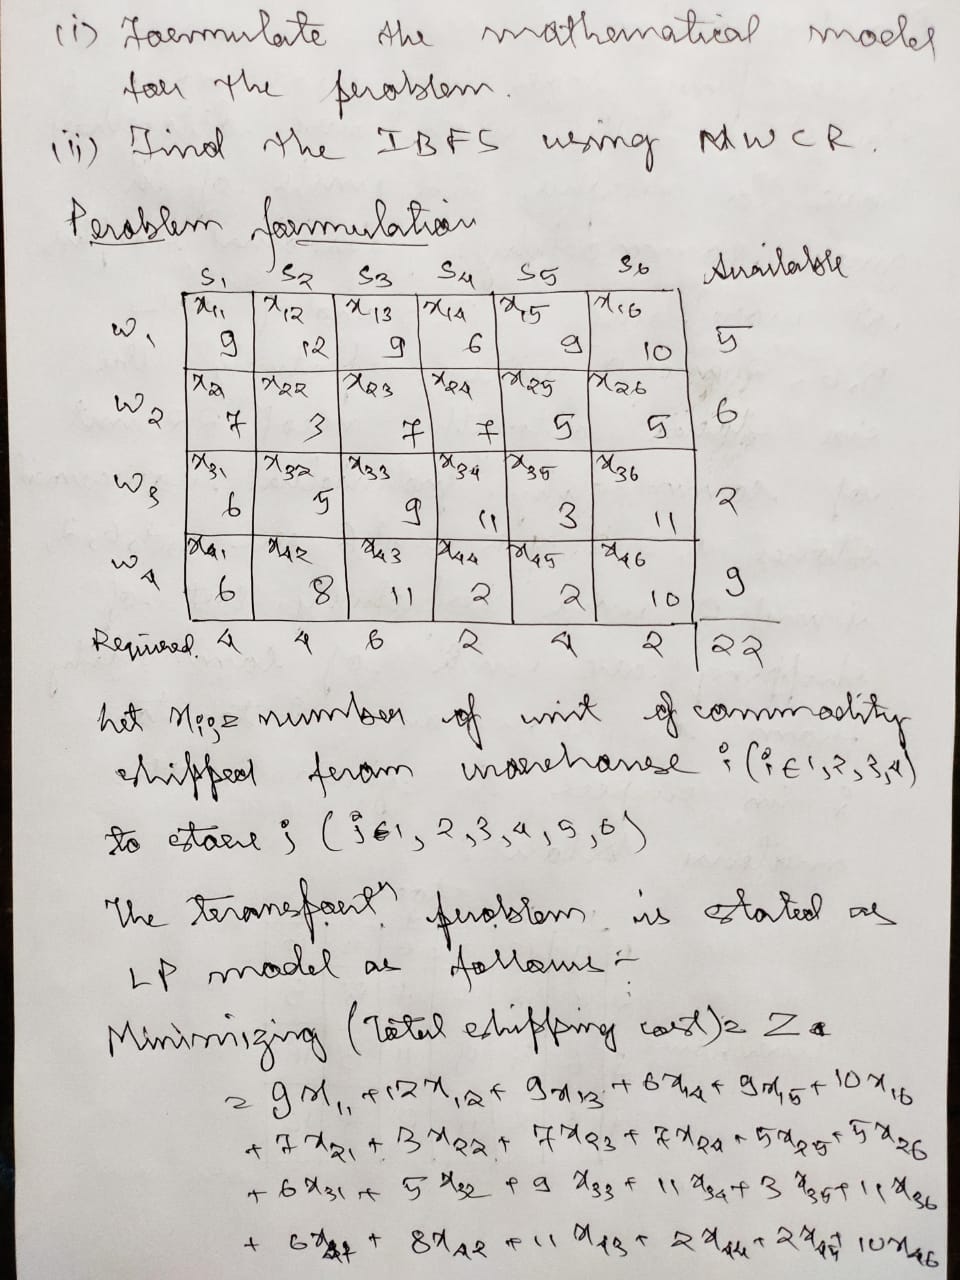 (i) Formulate the mathematical model
for the problem.
(ii) Find the IBFS using NWCR.
Problem formulation
S1 S2 S3 S4 S5 S6 Available
W1 x11 9 x12 12 x13 9 x14 6 x15 9 x16 10 5
W2 x21 7 x22 3 x23 7 x24 7 x25 5 x26 5 6
W3 x31 6 x32 5 x33 9 x34 11 x35 3 x36 11 2
W4 x41 6 x42 8 x43 11 x44 2 x45 2 x46 10 9
Required. 4 4 6 2 4 2 22
Let xij = number of unit of commodity
shipped from warehouse i (i ∈ 1, 2, 3, 4)
to store j (j ∈ 1, 2, 3, 4, 5, 6)
The transportn problem is stated as
LP model as follows :-
Minimizing (Total shipping cost) = Z
= 9x11 + 12x12 + 9x13 + 6x14 + 9x15 + 10x16
+ 7x21 + 3x22 + 7x23 + 7x24 + 5x25 + 5x26
+ 6x31 + 5x32 + 9x33 + 11x34 + 3x35 + 11x36
+ 6x41 + 8x42 + 11x43 + 2x44 + 2x45 + 10x46